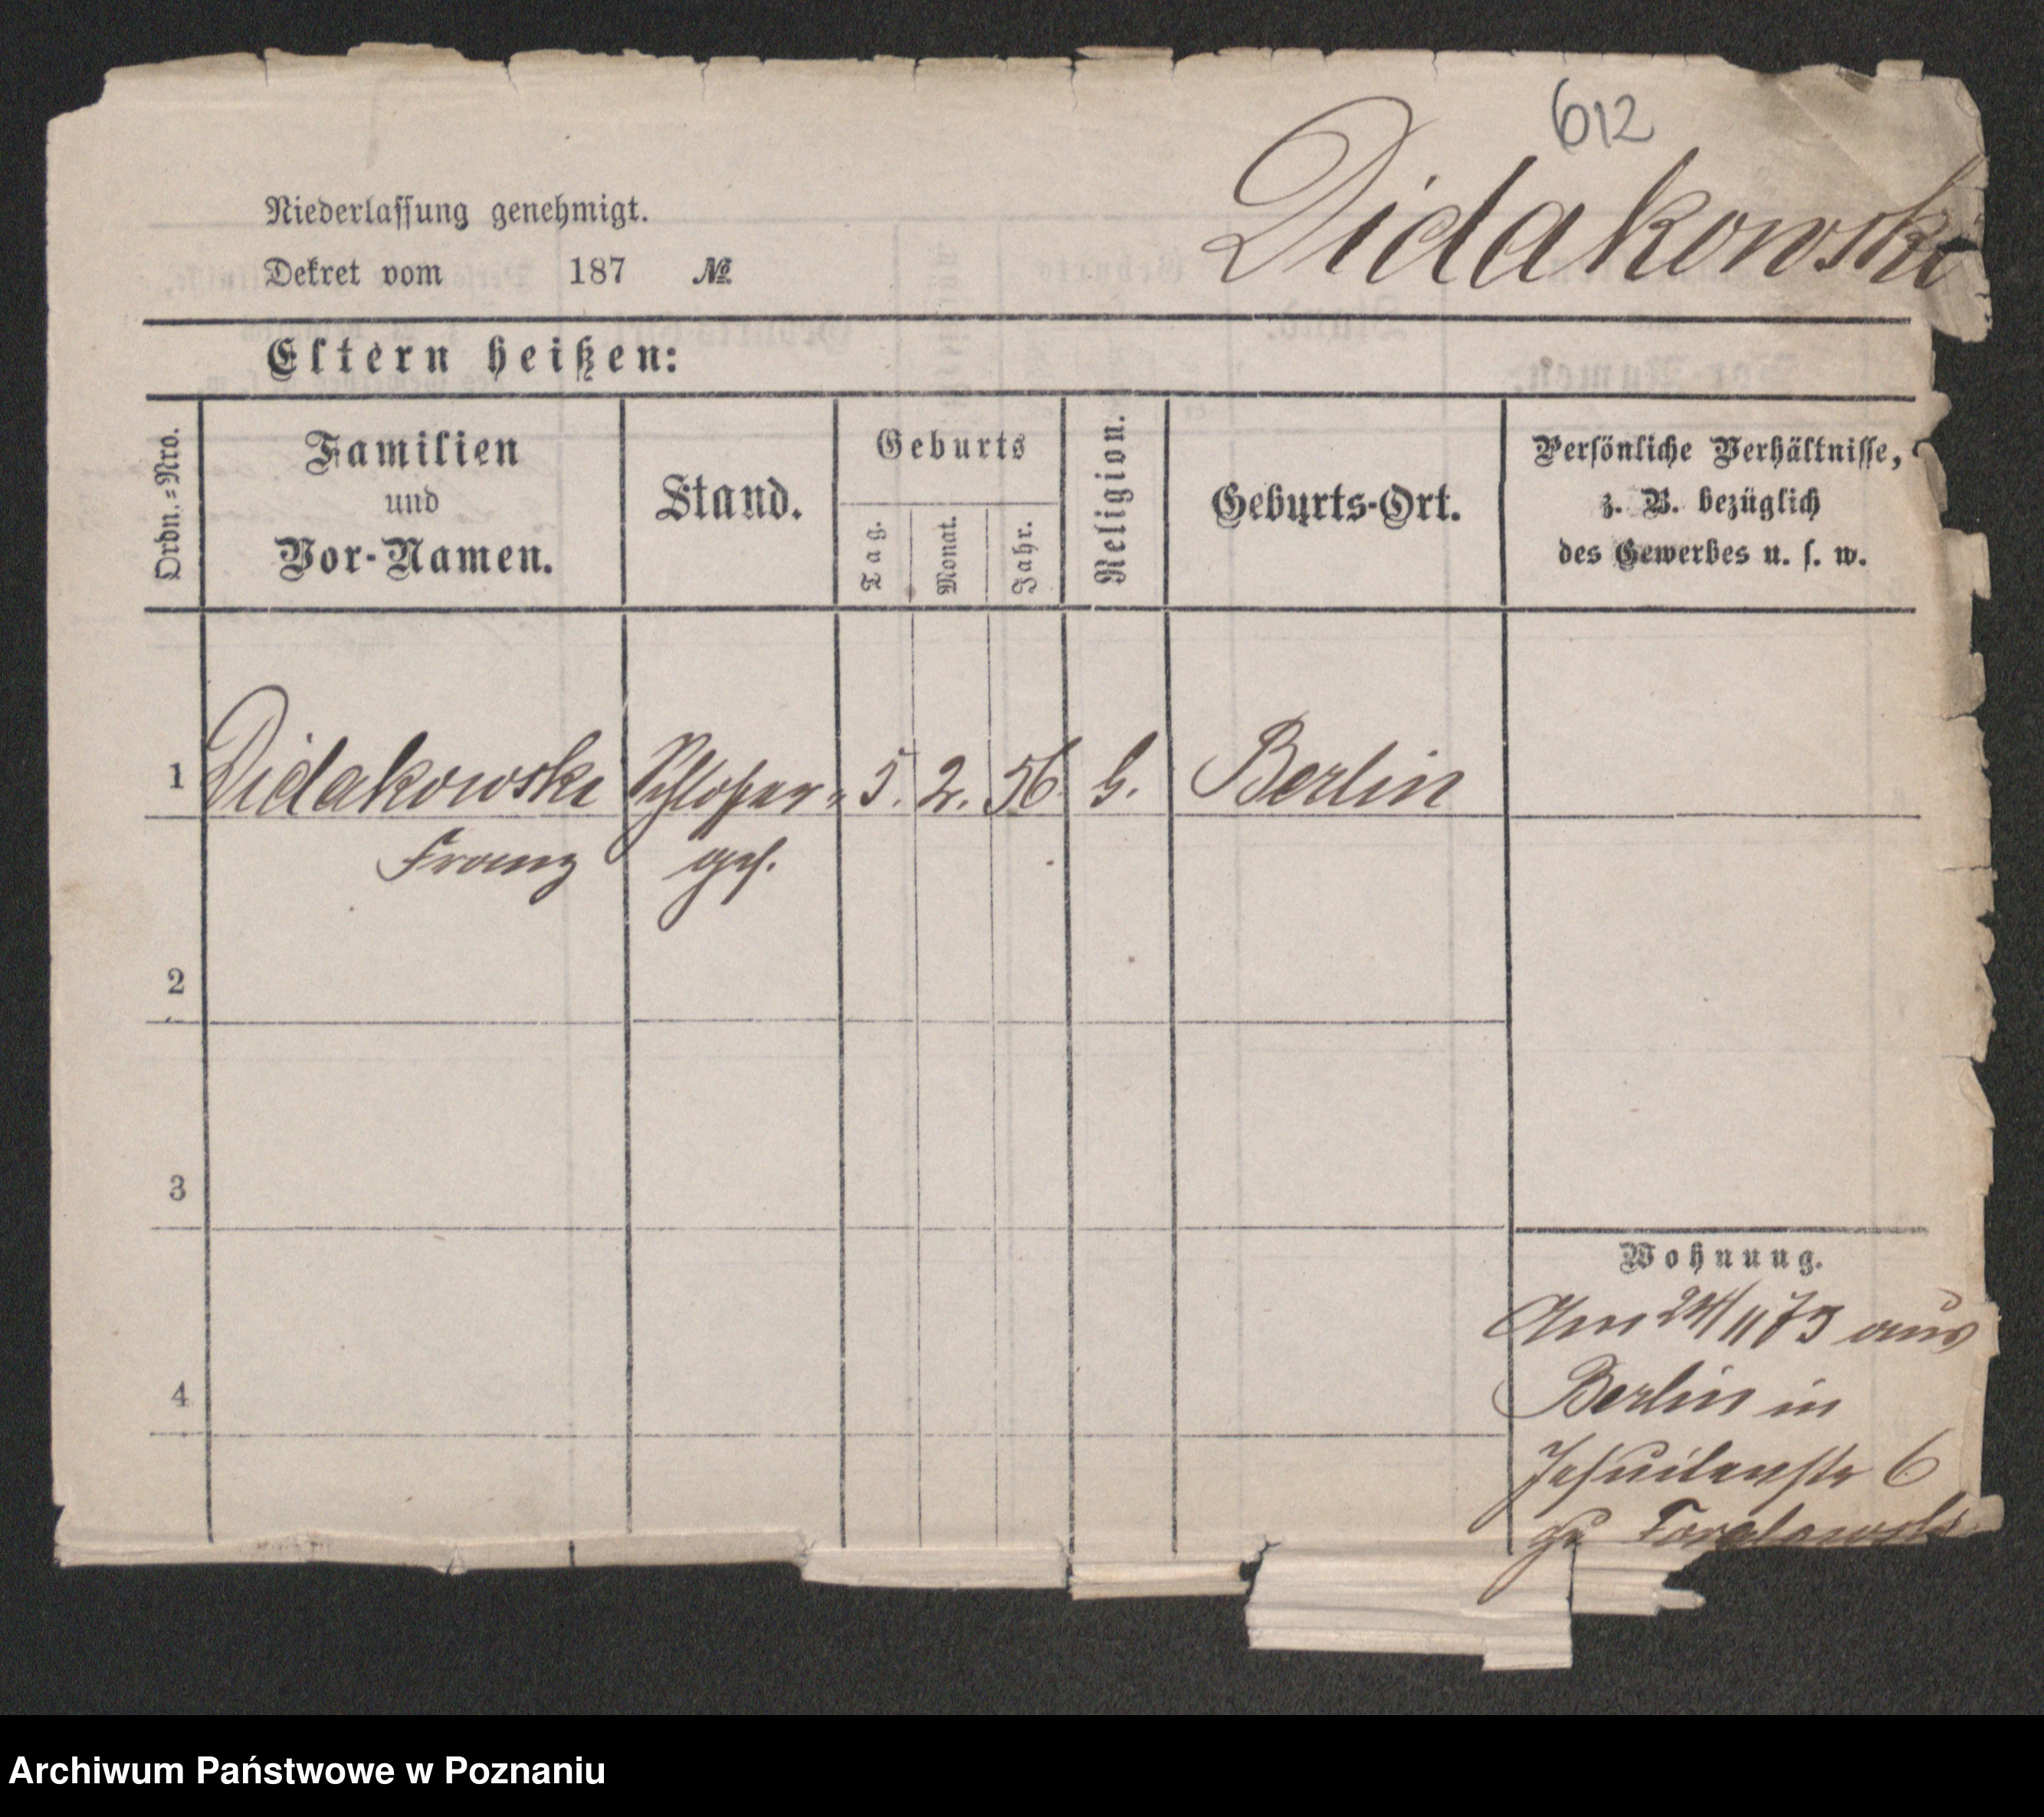 612
Didakowski
Niederlassung genehmigt.
Dekret vom 187 №
Eltern heißen:
Ordn.=Nro.
Familien
und
Vor-Namen.
Stand.
Geburts
Tag.
Monat.
Jahr.
Religion.
Geburts-Ort.
Persönliche Verhältnisse,
z. B. bezüglich
des Gewerbes u. s. w.
1 Didakowski Schlosser- 5. 2. 56. Berlin
Franz ges.
2
3
4
Wohnung.
Am 24/11 73 aus
Berlin in
Jesuitenstr 6
Archiwum Państwowe w Poznaniu